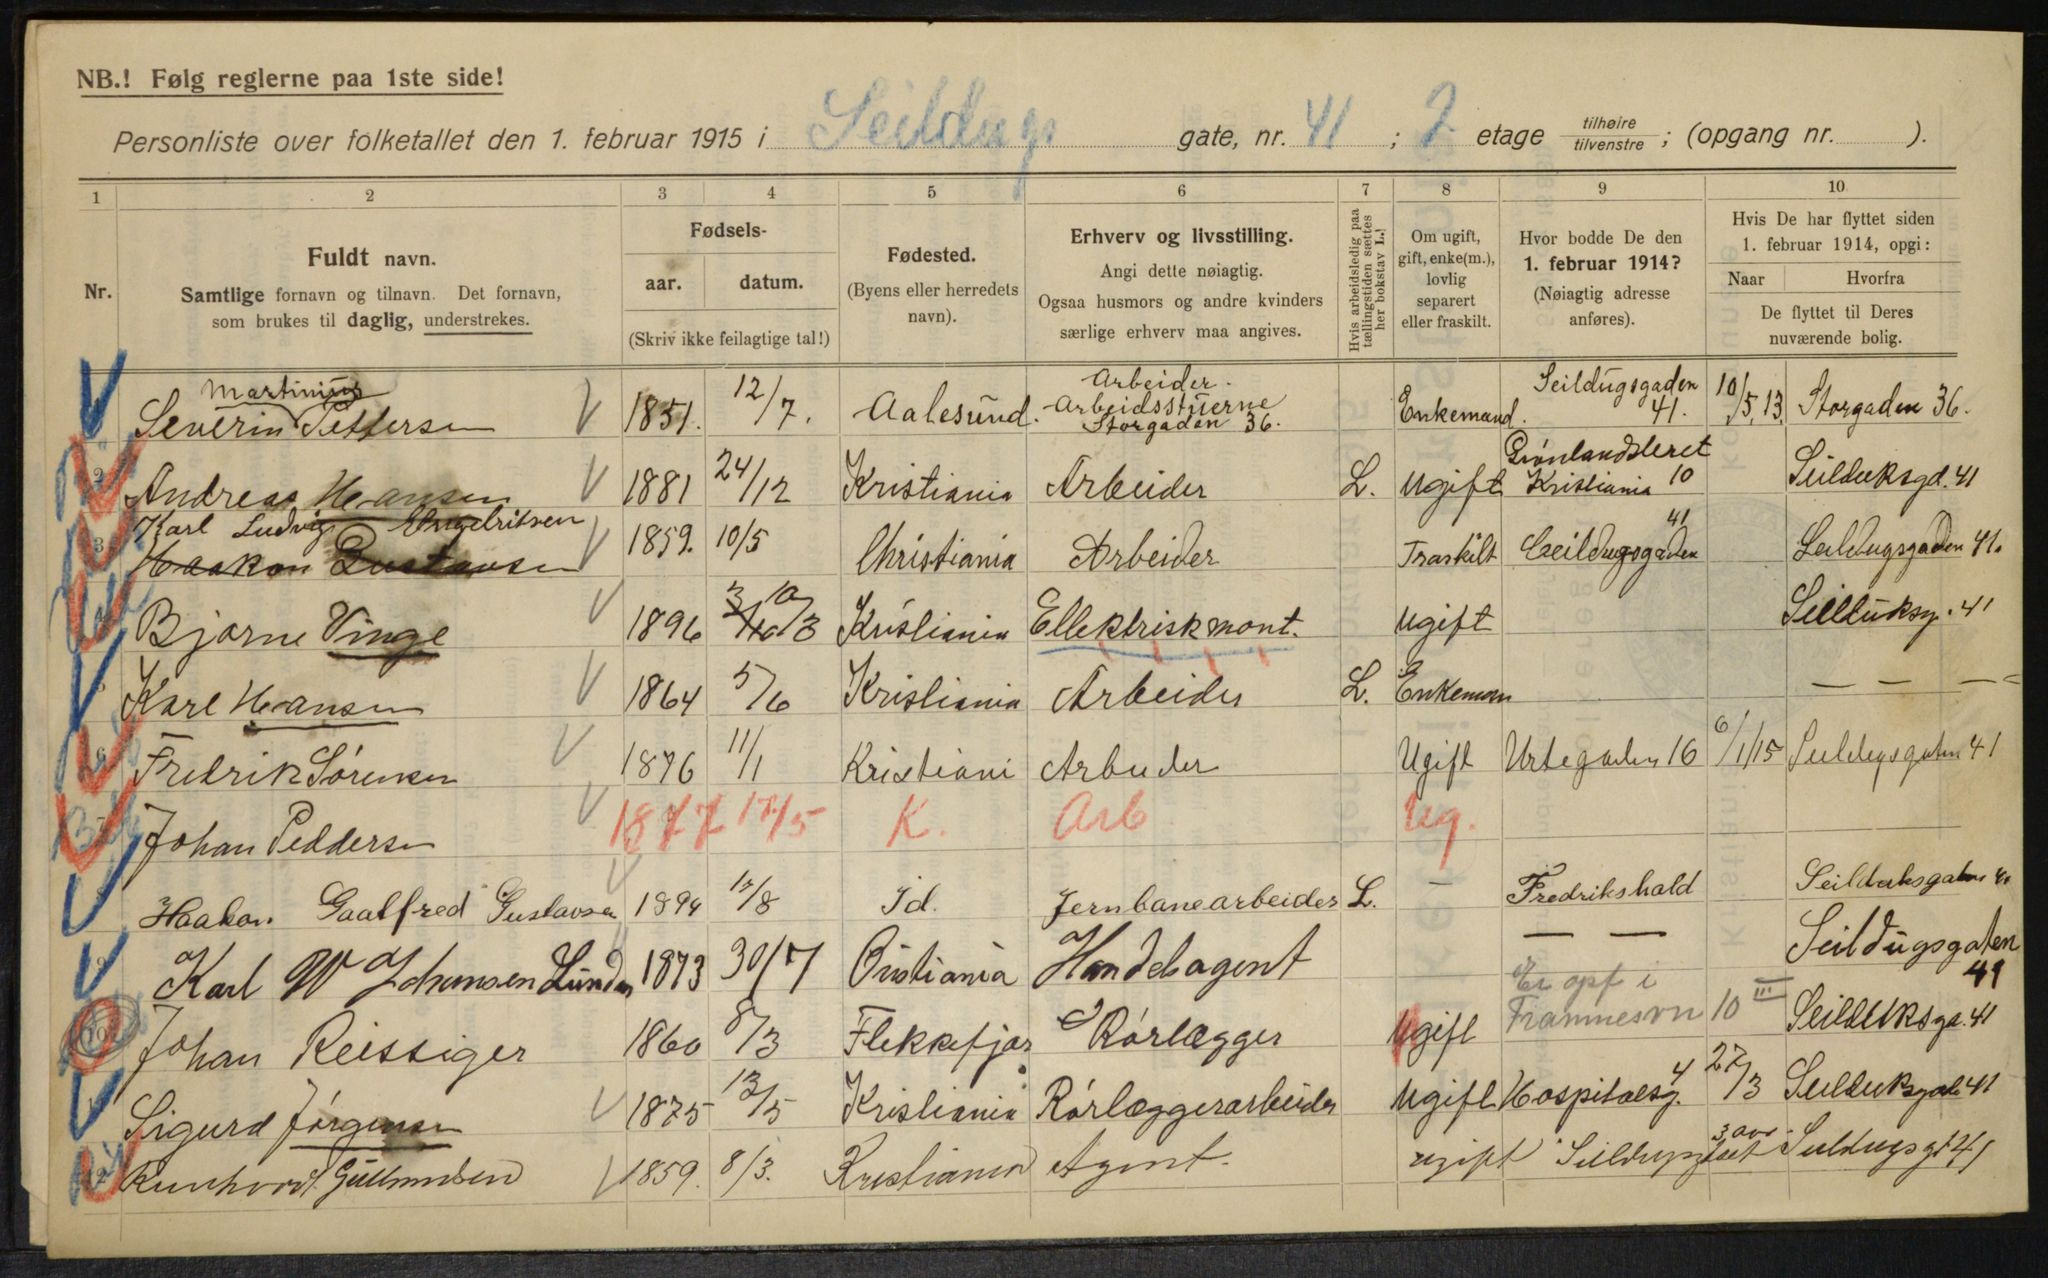 NB.! Følg reglerne paa 1ste side!
Personliste over folketallet den 1. februar 1915 i Seildugs gate, nr. 41 ; 2 etage tilhøire tilvenstre ; (opgang nr. ).
1 2 3 4 5 6 7 8 9 10
Nr.
Fuldt navn.
Samtlige fornavn og tilnavn. Det fornavn, som brukes til daglig, understrekes.
Fødsels-
aar. datum.
(Skriv ikke feilagtige tal!)
Fødested.
(Byens eller herredets navn).
Erhverv og livsstilling.
Angi dette nøiagtig.
Ogsaa husmors og andre kvinders særlige erhverv maa angives.
Hvis arbeidsledig paa tællingstiden sættes her bokstav L.
Om ugift, gift, enke(m.), lovlig separert eller fraskilt.
Hvor bodde De den 1. februar 1914?
(Nøiagtig adresse anføres).
Hvis De har flyttet siden 1. februar 1914, opgi:
Naar Hvorfra
De flyttet til Deres nuværende bolig.
Severin Martinius Pettersen 1851. 12/7. Aalesund. Arbeider. Arbeidsstuerne Storgaden 36. Enkemand. Seildugsgaden 41. 10/5.13. Storgaden 36.
2 Andreas Hansen 1881 24/12 Kristiania Arbeider L. Ugift Grønlandsleret Kristiania 10 Seilduksgd. 41
Karl Ludvig Engebritsen
3 Haakon Gustavsen 1859. 10/5 Christiania Arbeider Fraskilt Seildugsgaden 41 Seildugsgaden 41.
4 Bjarne Vinge 1896 10/3 Kristiania Ellektriskmont. Ugift Seilduksg. 41
5 Karl Hansen 1864 5/6 Kristiania Arbeider L. Enkeman — — —
6 Fredrik Sørensen 1876 11/1 Kristiani Arbeider Ugift Urtegaden 16 6/1/15 Seildugsgaten 41
7 Johan Peddersen 1877 17/5 K. Arb Ug.
Haakon Gaalfred Gustavsen 1894 12/8 Id. Jernbanearbeider L. — Fredrikshald Seilduksgaten 41
9 Karl W Johansen Lunder 1873 30/7 Cristiania Handelsagent — — Seildugsgaten 41
10 Johan Reissiger 1860 8/3 Flekkefjor Rørlægger Ugift Er opf i Framnesvn 10 III Seilduksga. 41
Sigurd Jørgensen 1875 13/5 Kristiania Rørlæggerarbeider Ugift Hospitalsg. 4 27/3 Seilduksgade 41
12 Gulbrandsen 1859. 8/3. Kristiania Agent. ugift Seildugsgt 41